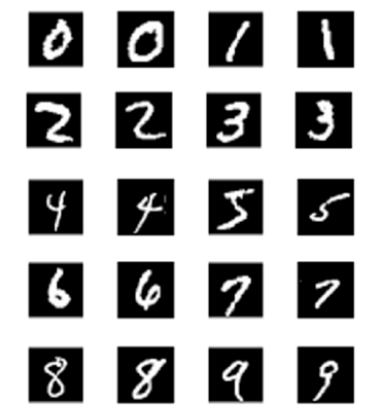 0 0 1 1
2 2 3 3
4 4 5 5
6 6 7 7
8 8 9 9